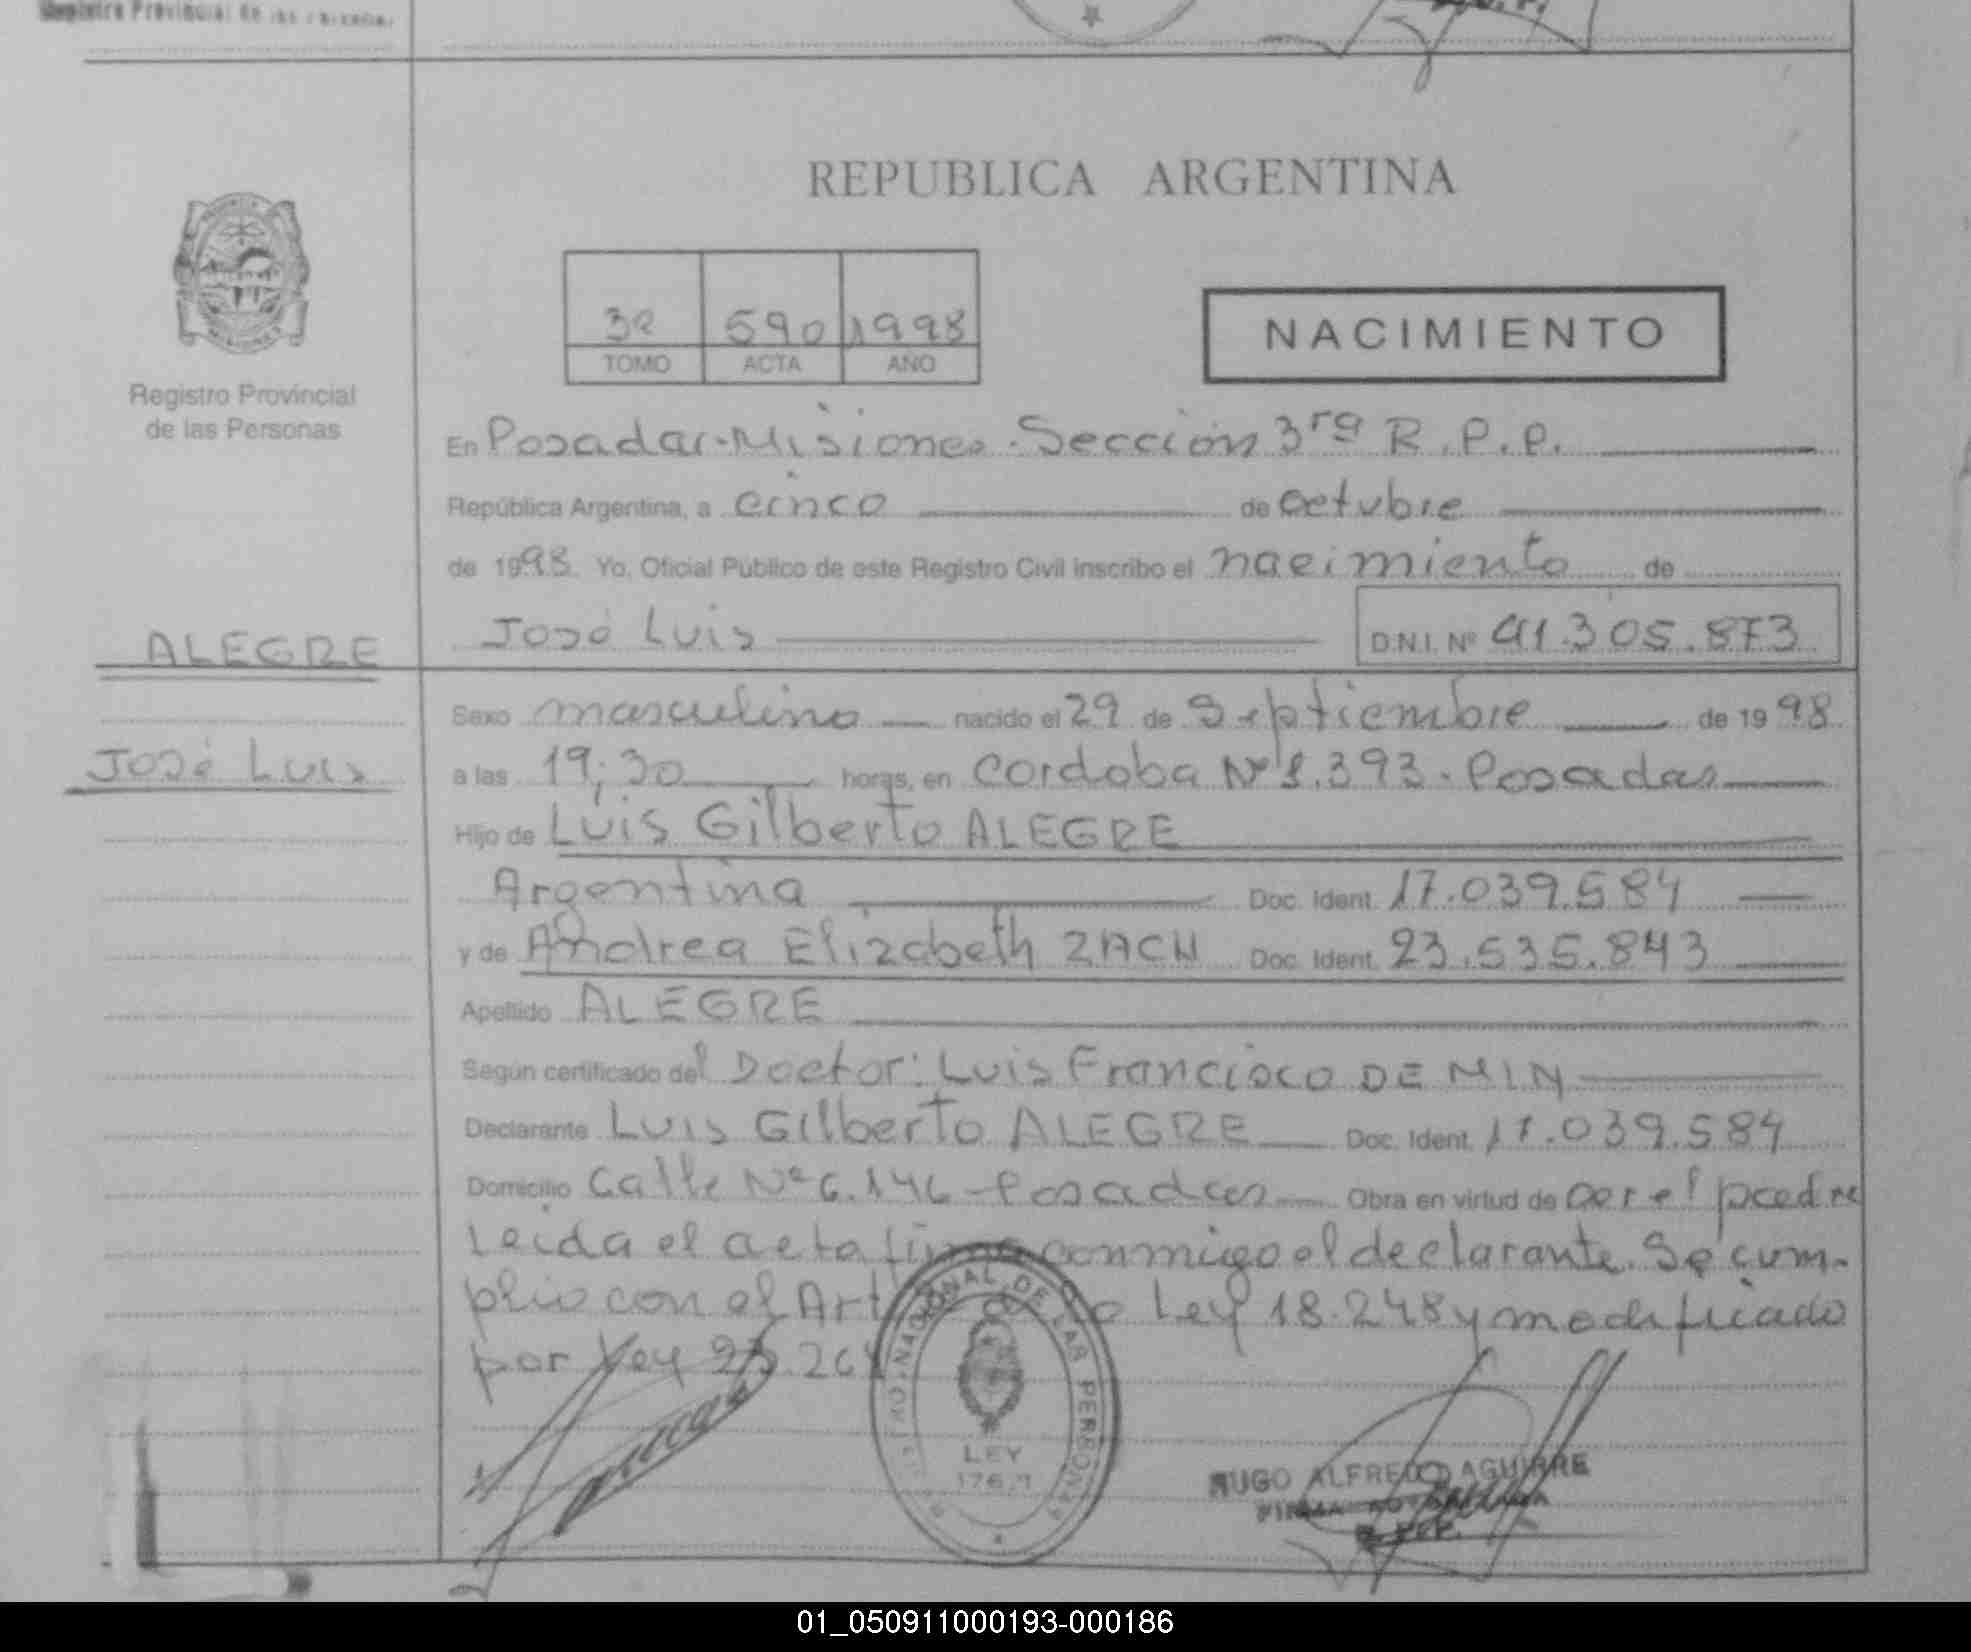 Registro Provincial de las Personas
REPUBLICA ARGENTINA
590 1998
TOMO ACTA AÑO
NACIMIENTO
Registro Provincial
de las Personas
En Posadas-Misiones-Sección 3ra R.P.P.
República Argentina, a cinco de octubre
de 1998 Yo, Oficial Público de este Registro Civil inscribo el nacimiento de
ALEGRE
José Luis
D.N.I. Nº 41.305.873
Sexo masculino nacido el 29 de Septiembre de 1998
José Luis
a las 19:30 horas, en Cordoba Nº 1.393. Posadas
Hijo de Luis Gilberto ALEGRE
Argentina Doc. Ident. 17.039.584
y de Andrea Elizabeth ZACH Doc. Ident. 23.535.843
Apellido ALEGRE
Según certificado del Doctor: Luis Francisco DE MIN
Declarante Luis Gilberto ALEGRE Doc. Ident. 17.039.584
Domicilio Calle Nº 6.146 - Posadas Obra en virtud de ser el padre
Leida el acta firma conmigo el declarante. Se cum-
plio con el Art Ley 18.248 y modificado
por Ley
NACIONAL DE LAS PERSONAS
LEY
HUGO ALFREDO AGUIRRE
01_050911000193-000186